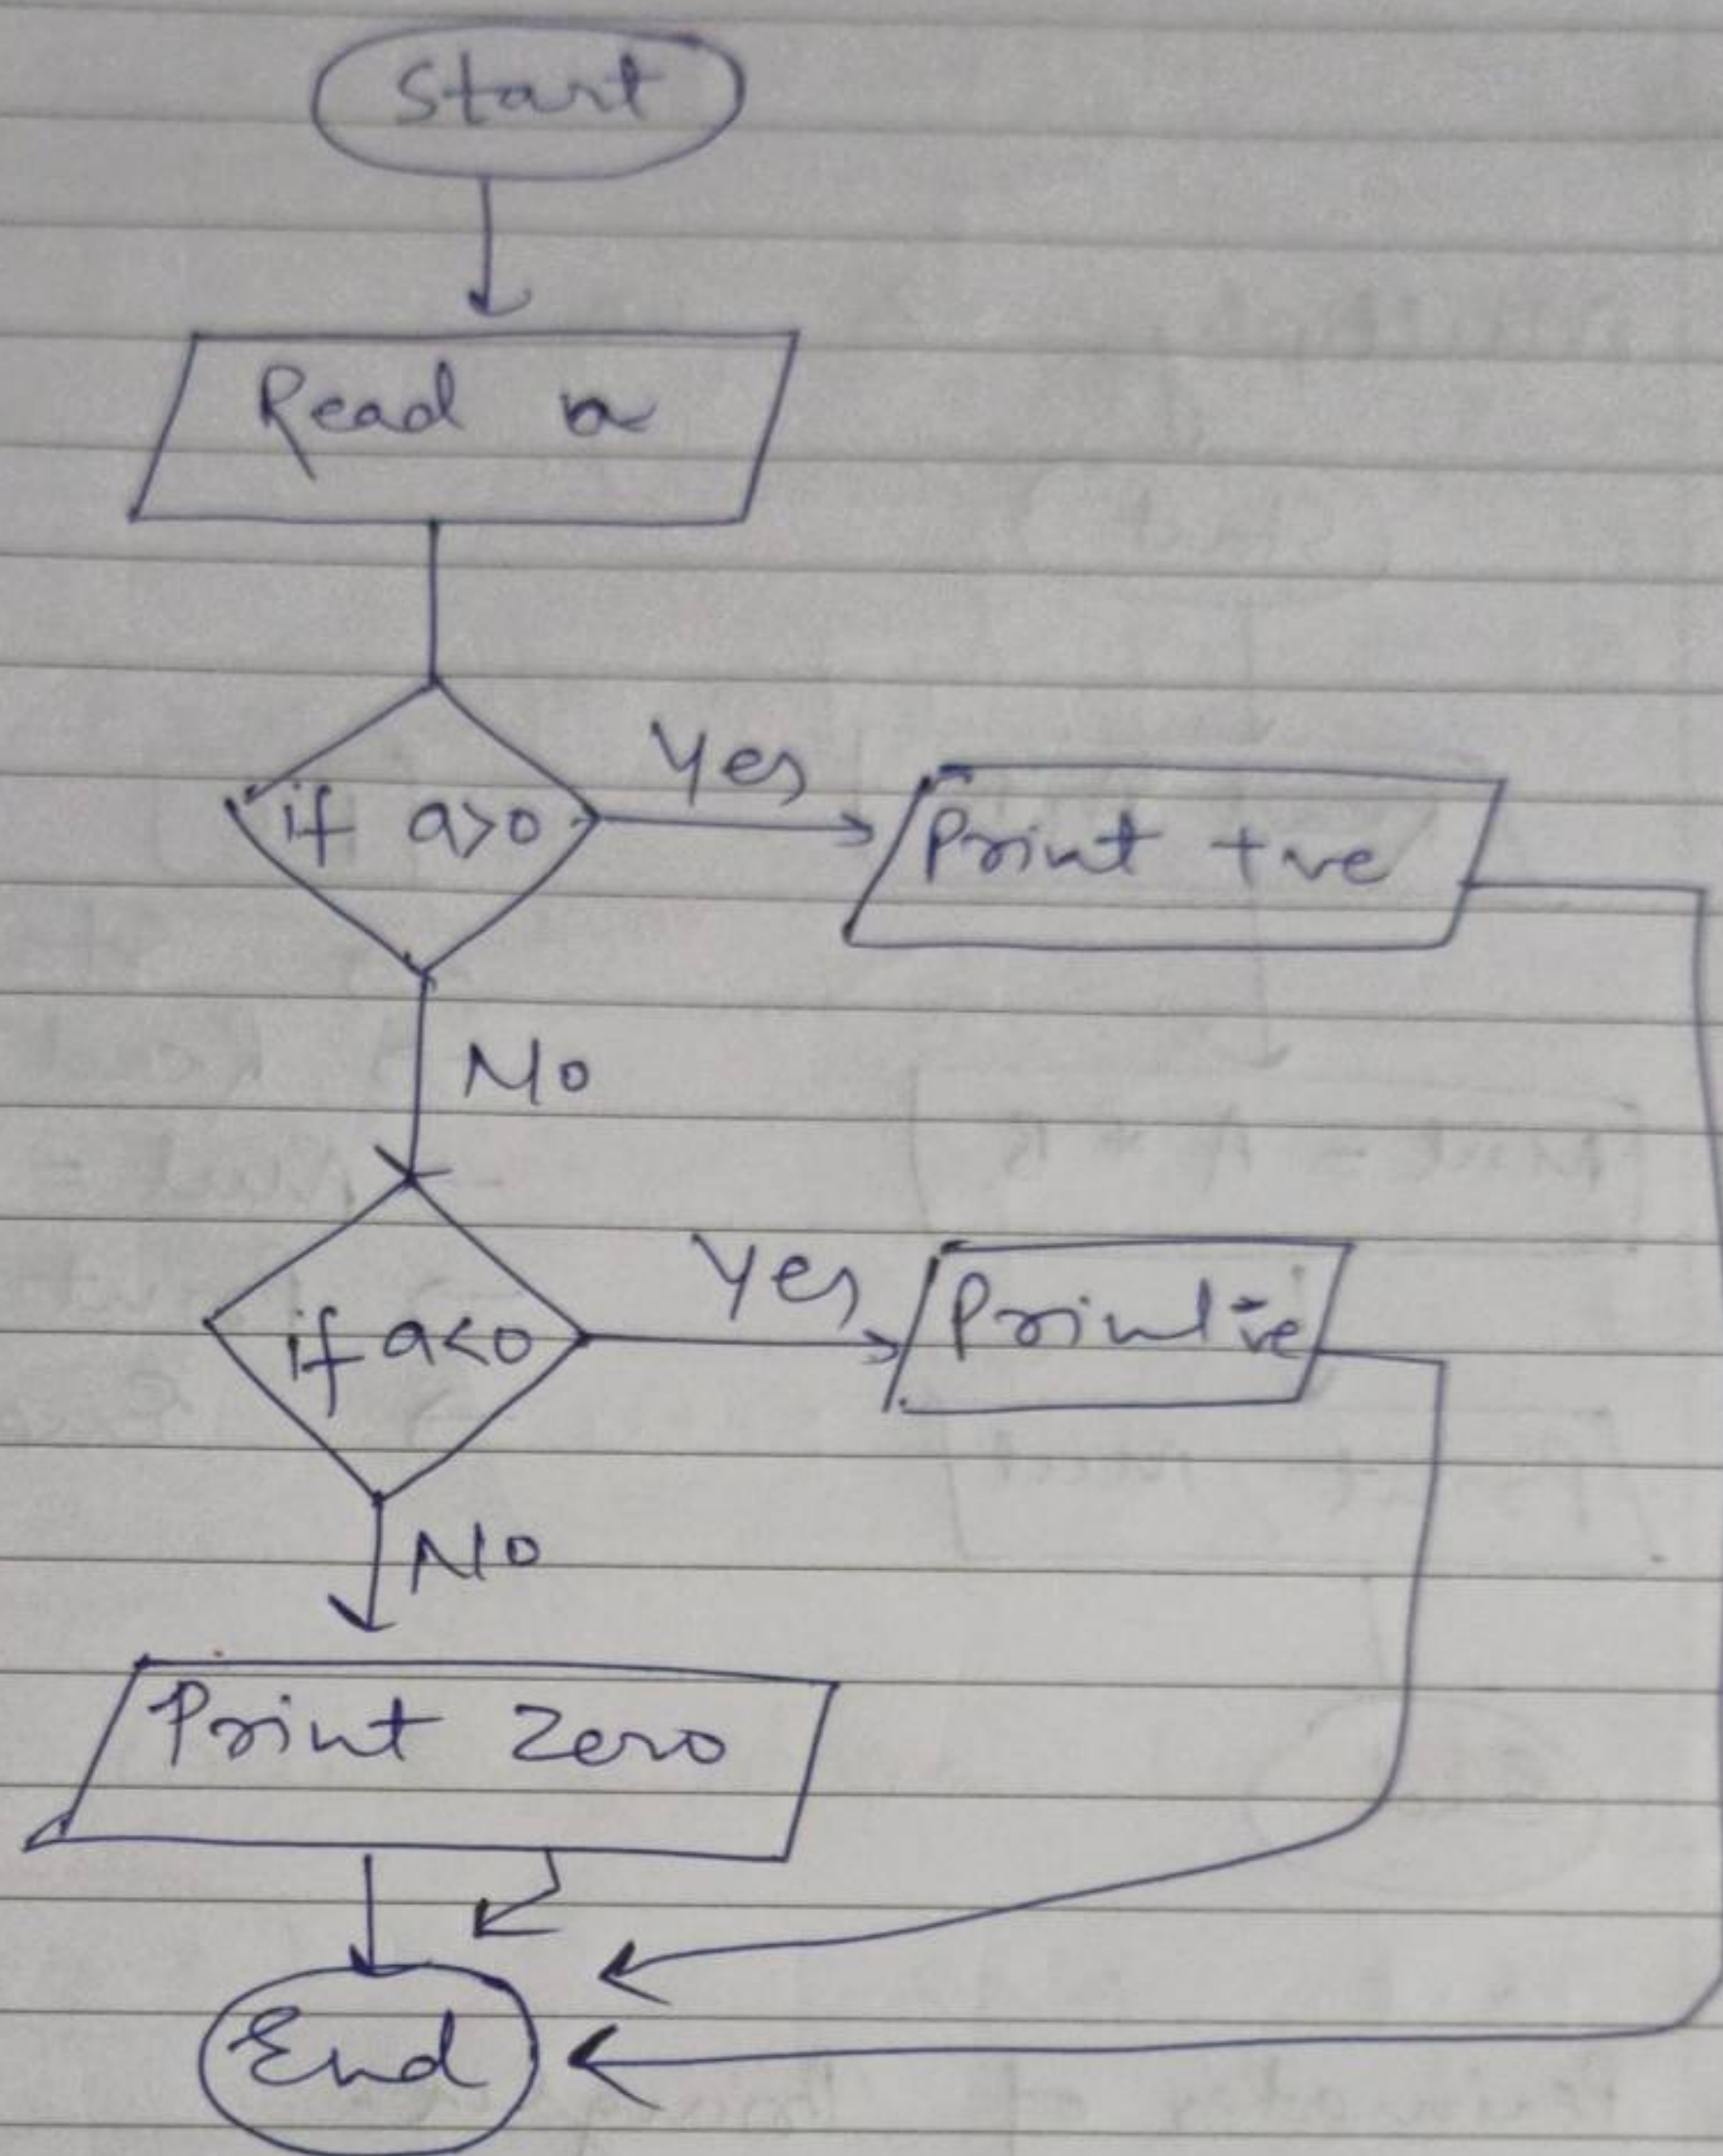 Start
Read a
if a>0
Yes
Print +ve
No
if a<0
Yes
Print -ve
No
Print Zero
End